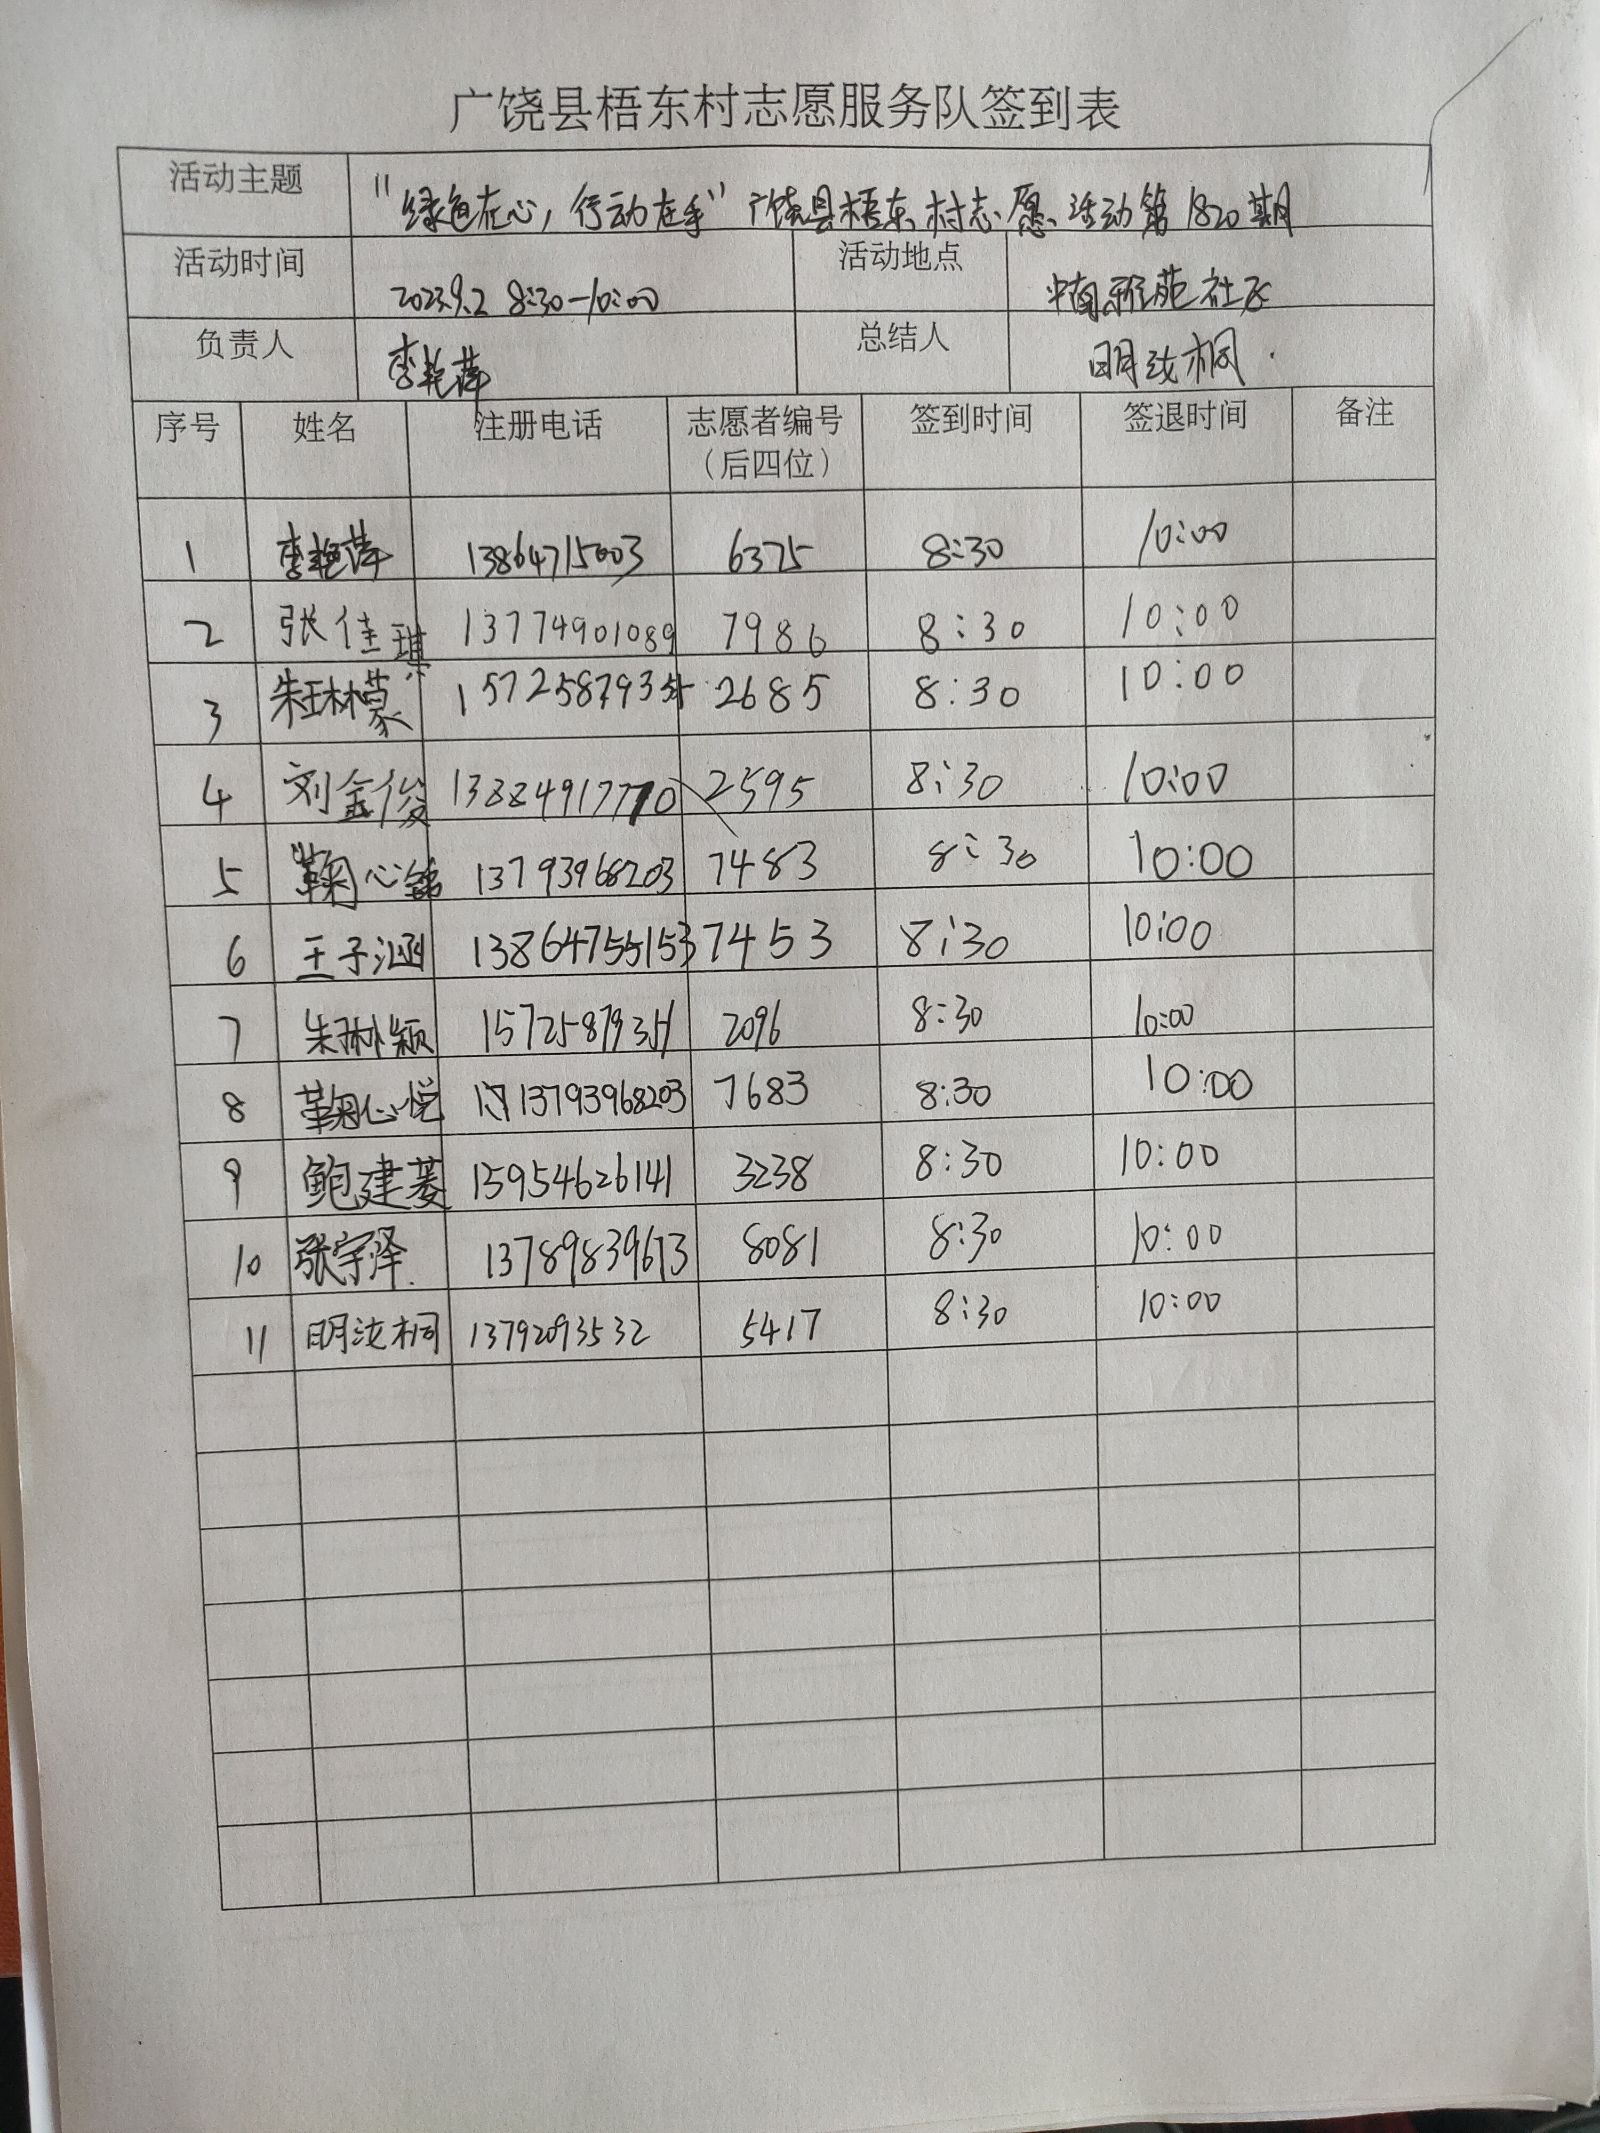 广饶县梧东村志愿服务队签到表
活动主题 "绿色在心，行动在手"广饶县梧东村志愿活动第1820期
活动时间 2023.9.2 8:30-10:00 活动地点 中南雅苑社区
负责人 李艳萍 总结人 明汝桐
序号 姓名 注册电话 志愿者编号 签到时间 签退时间 备注
（后四位）
1 李艳萍 13864715003 6375 8:30 10:00
2 张佳琪 13774901089 7986 8:30 10:00
3 朱琳蒙 2685 8:30 10:00
4 刘金俊 2595 8:30 10:00
5 鞠心铭 13793968203 7483 8:30 10:00
6 王子涵 13864755153 7453 8:30 10:00
7 朱琳颖 2096 8:30 10:00
8 鞠心悦 13793968203 7683 8:30 10:00
9 鲍建菱 15954626141 3238 8:30 10:00
10 张宇泽 13789839673 8081 8:30 10:00
11 明汝桐 13792093532 5417 8:30 10:00